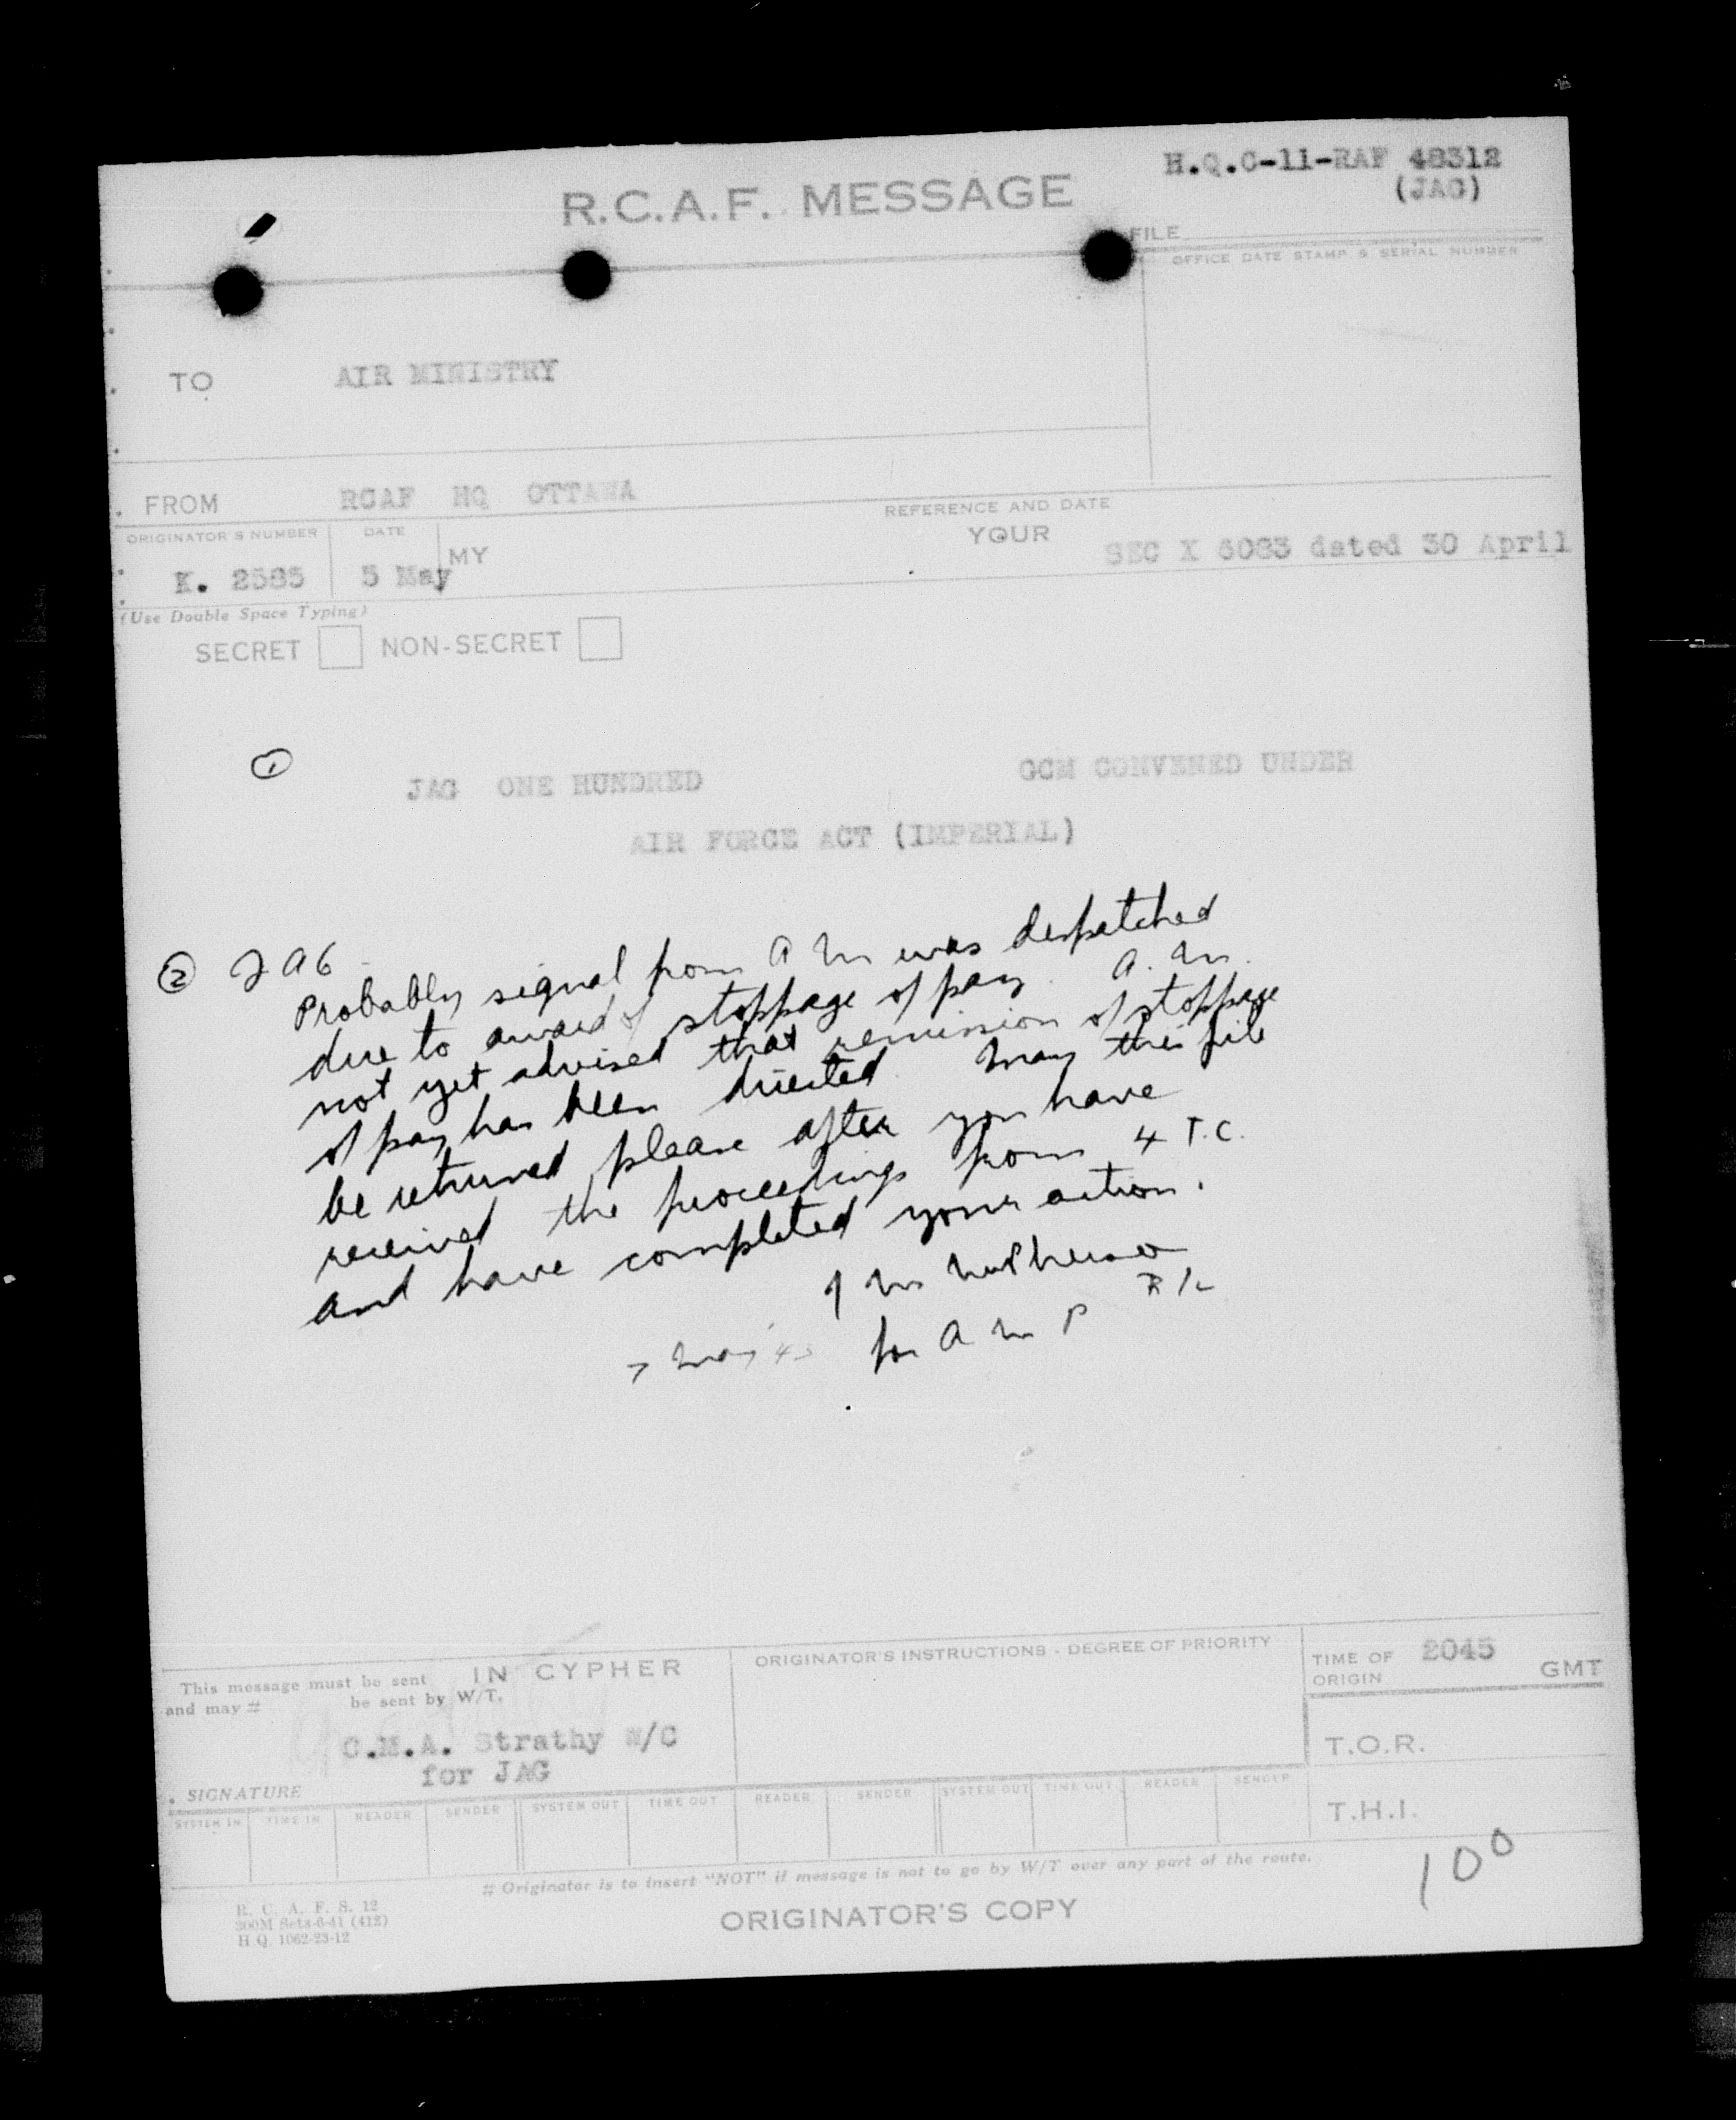 H.Q.C-11-RAF 48312
(JAG)
R.C.A.F. MESSAGE
FILE
OFFICE DATE STAMP & SERIAL NUMBER
TO AIR MINISTRY
FROM RCAF HQ OTTAWA
REFERENCE AND DATE
ORIGINATOR'S NUMBER DATE MY YOUR SEC X 6083 dated 30 April
K. 2585 5 May
(Use Double Space Typing)
SECRET NON-SECRET
1
JAG ONE HUNDRED GCM CONVENED UNDER
AIR FORCE ACT (IMPERIAL)
2 JAG
Probably signal from A M was despatched
due to award of stoppage of pay. A.M.
not yet advised that remission of stoppage
of pay has been directed. May this file
be returned please after you have
received the proceedings from 4 T.C.
and have completed your action.
for A M P
7 May 43
This message must be sent IN CYPHER
and may # be sent by W/T.
ORIGINATOR'S INSTRUCTIONS - DEGREE OF PRIORITY
TIME OF ORIGIN 2045 GMT
C.M.A. Strathy W/C
for JAG
SIGNATURE
T.O.R.
SYSTEM IN TIME IN READER SENDER SYSTEM OUT TIME OUT READER SENDER SYSTEM OUT TIME OUT READER SENDER
T.H.I.
# Originator is to insert "NOT" if message is not to go by W/T over any part of the route.
100
R. C. A. F. S. 12
300M Sets-6-41 (412)
H.Q. 1062-23-12
ORIGINATOR'S COPY